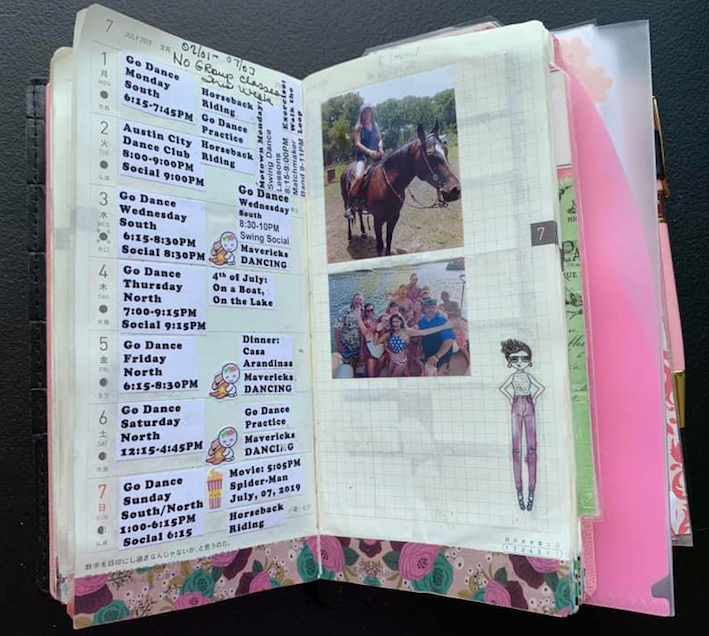 7 JULY 2019
02/01 - 07/07
No GRoup Classes
This Week
1
月
MON
Go Dance
Monday
South
6:15-7:45PM
Horseback
Riding
Go Dance
Practice
Horseback
Riding
Motown Monday!
Swing Dance
Lessons
8:15-9:00PM
Matchmaker
Band 9-11PM
Exercise:
Walk the
Loop
2
火
Austin City
Dance Club
8:00-9:00PM
Social 9:00PM
3
水
Go Dance
Wednesday
South
6:15-8:30PM
Social 8:30PM
Go Dance
Wednesday
South
8:30-10PM
Swing Social
Mavericks
DANCING
4
木
THU
Go Dance
Thursday
North
7:00-9:15PM
Social 9:15PM
4th of July:
On a Boat,
On the Lake
5
金
FRI
Go Dance
Friday
North
6:15-8:30PM
Dinner:
Casa
Arandinas
Mavericks
DANCING
6
土
SAT
Go Dance
Saturday
North
12:15-4:45PM
Go Dance
Practice
Mavericks
DANCING
7
日
SUN
Go Dance
Sunday
South/North
1:00-6:15PM
Social 6:15
Movie: 5:05PM
Spider-Man
July, 07, 2019
Horseback
Riding
数字を目印にし過ぎなんじゃないか、と思うのだ。
7